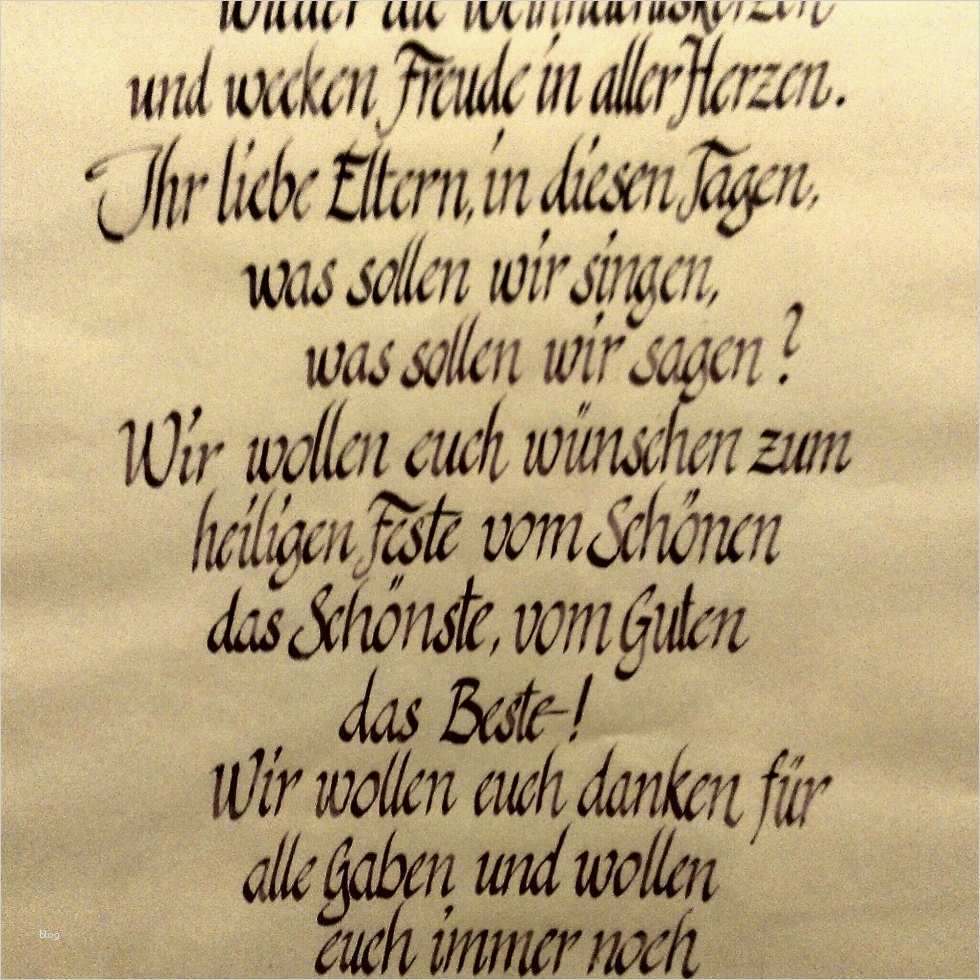 wieder die Weihnachtskerzen
und wecken Freude in aller Herzen.
Ihr liebe Eltern, in diesen Tagen,
was sollen wir singen,
was sollen wir sagen?
Wir wollen euch wünschen zum
heiligen Feste vom Schönen
das Schönste, vom Guten
das Beste-!
Wir wollen euch danken für
alle Gaben und wollen
euch immer noch
blog